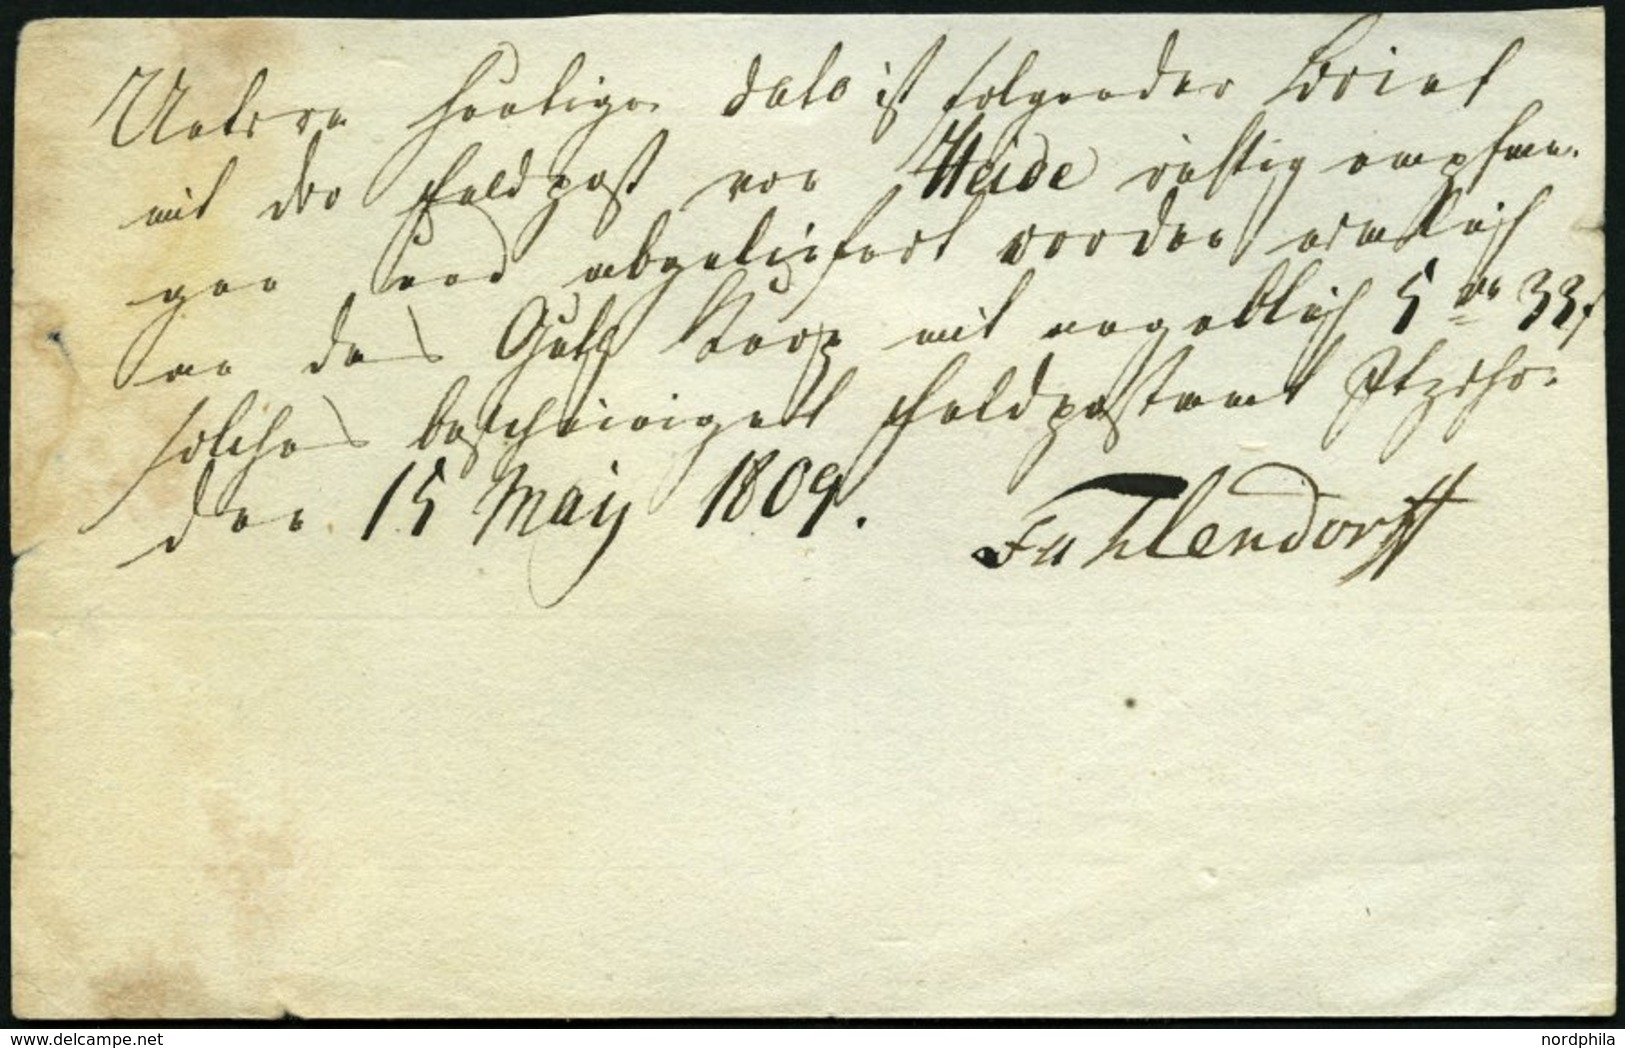 Untern heutigen dato ist folgender Brief
mit der Feldpost von Heide richtig empfan-
gen und abgeliefert worden nemlich
an das Guth mit angeblich 5 33
solches bescheiniget Feldpostamt Itzeho-
den 15 Maÿ 1809. Fuhlendorff
delcampe.net
nordphila